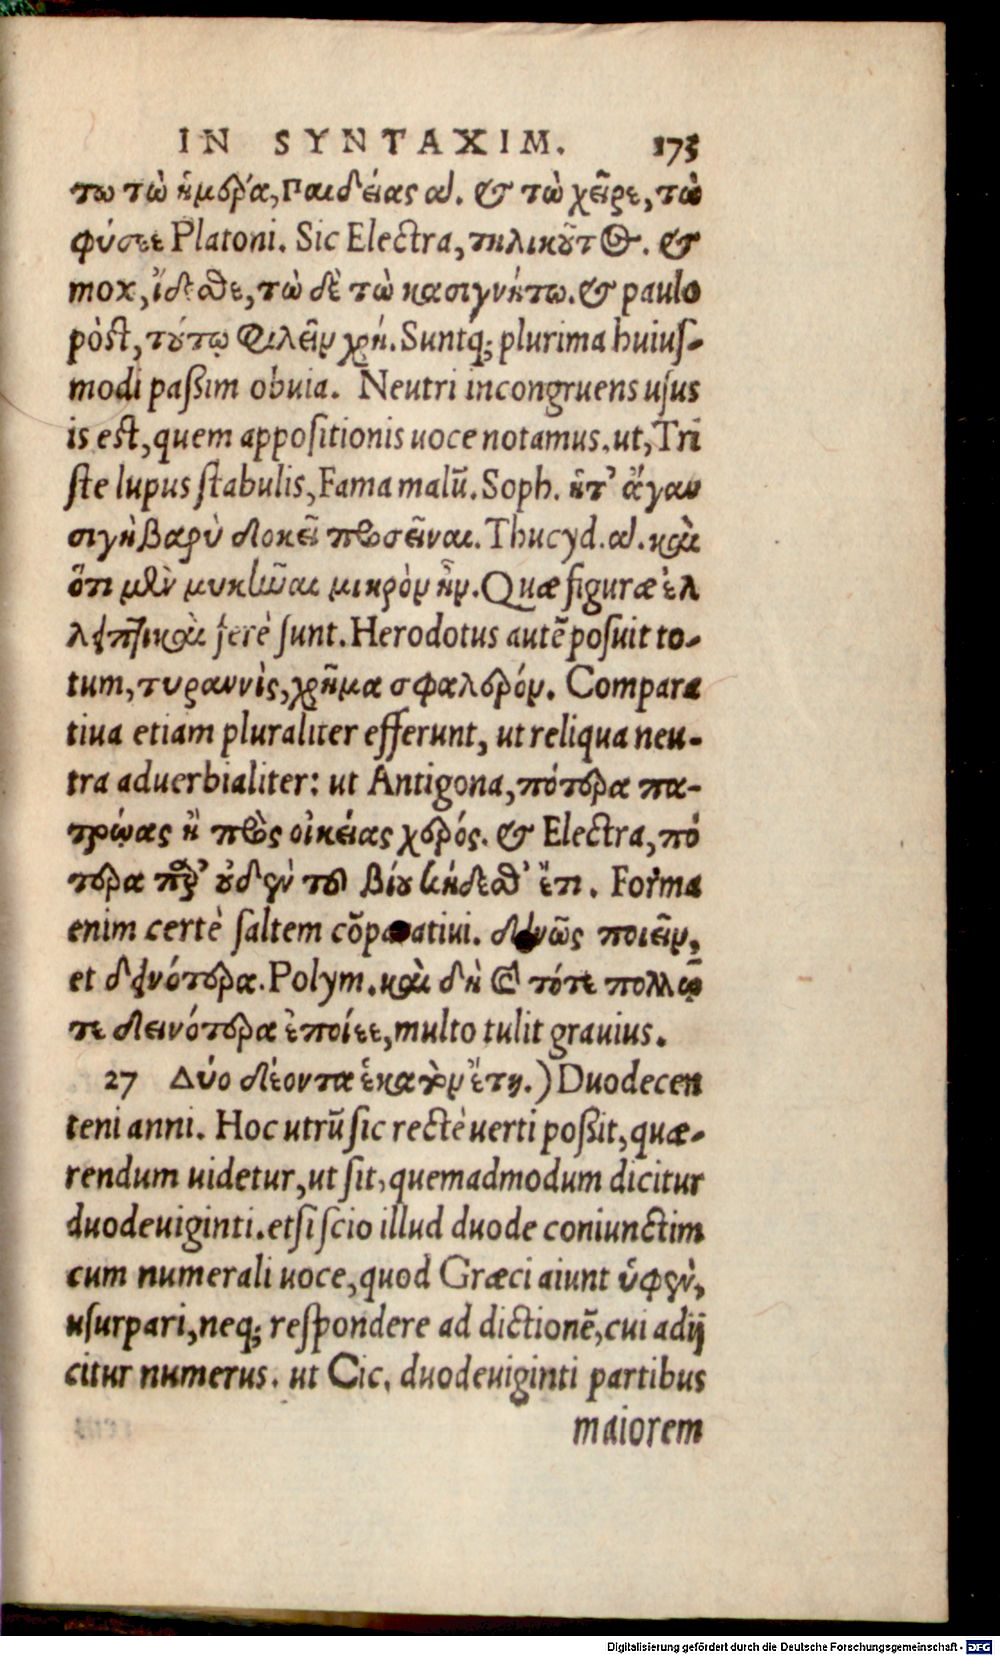 IN SYNTAXIM. 173
τω τὼ ἡμέρα, Παιδείας α. & τὼ χεῖρε, τὼ
φύσεε Platoni. Sic Electra, τηλικοῦτος. &
mox, ἴδεσθε, τὼ δὲ τὼ κασιγνήτω. & paulo
pòst, τούτω φιλεῖν χρή. Suntq; plurima huius-
modi paßim obuia. Neutri incongruens usus
is est, quem appositionis uoce notamus. ut, Tri
ste lupus stabulis, Fama malũ. Soph. ἥτ' ἄγαν
σιγὴ βαρὺ δοκεῖ προσεῖναι. Thucyd. α. καὶ
ὅτι μὲν μυκῆναι μικρὸν ἦν. Quæ figuræ ἐλ
λειπτικαὶ ferè sunt. Herodotus autẽ posuit to-
tum, τυραννὶς, χρῆμα σφαλερόν. Compara
tiua etiam pluraliter efferunt, ut reliqua neu-
tra aduerbialiter: ut Antigona, πότερα πα-
τρῴας ἢ πρὸς οἰκείας χερός. & Electra, πό
τερα παρ' οὐδὲν τοῦ βίου κήδεσθ' ἔτι. Forma
enim certè saltem cõparatiui. δεινῶς ποιεῖν,
et δεινότερα. Polym. καὶ δὴ καὶ τότε πολλῷ
τε δεινότερα ἐποίεε, multo tulit grauius.
27 Δύο δέοντα ἑκατὸν ἔτη.) Duodecen
teni anni. Hoc utrũ sic rectè uerti poßit, quæ-
rendum uidetur, ut sit, quemadmodum dicitur
duodeuiginti. etsi scio illud duode coniunctim
cum numerali uoce, quod Græci aiunt ὑφὲν,
usurpari, neq; respondere ad dictionẽ, cui adij
citur numerus. ut Cic. duodeuiginti partibus
maiorem
Digitalisierung gefördert durch die Deutsche Forschungsgemeinschaft - DFG